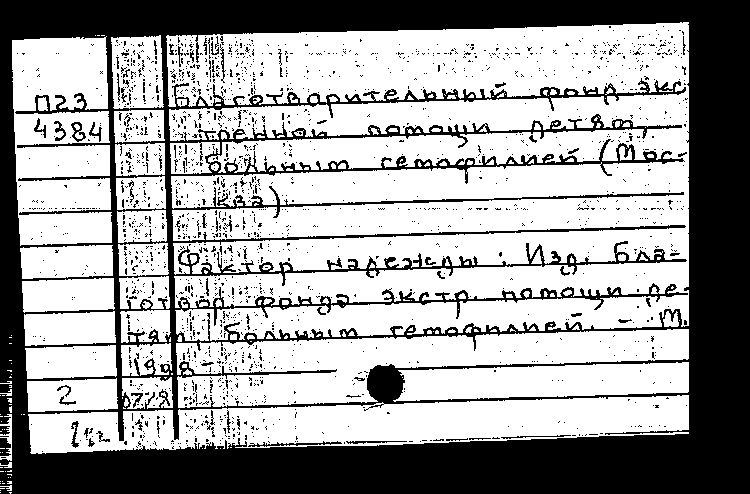 П23
4384
Благотворительный фонд экс
тренной помощи детям,
больным гемофилией (Мос-
ква)
Фактор надежды : Изд. Бла-
готвор. фонда экстр. помощи де-
тям, больным гемофилией. - М.
1998 -
2